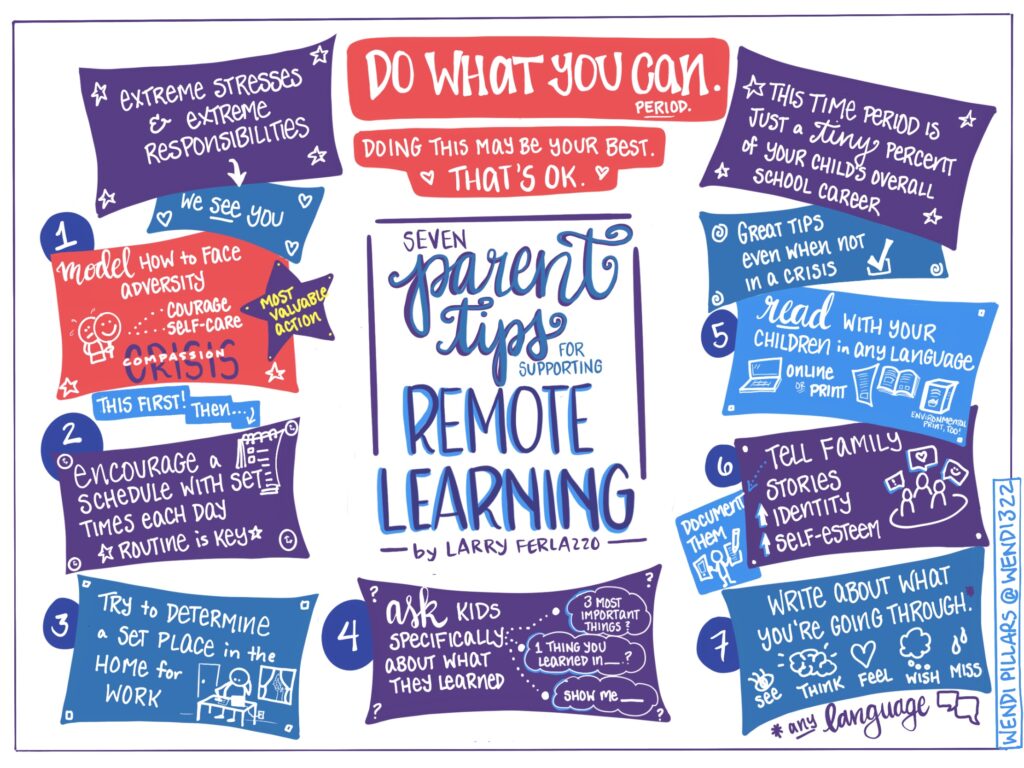 DO WHAT YOU CAN.
PERIOD.
DOING THIS MAY BE YOUR BEST.
THAT'S OK.
EXTREME STRESSES
& EXTREME
RESPONSIBILITIES
We see you
THIS TIME PERIOD IS
JUST a tiny PERCENT
OF YOUR CHILD'S OVERALL
SCHOOL CAREER
GREAT TIPS
even when not
in a crisis
SEVEN
parent
tips
FOR
SUPPORTING
REMOTE
LEARNING
by LARRY FERLAZZO
1
model HOW to FACE
ADVERSITY
COURAGE
SELF-CARE
COMPASSION
CRISIS
MOST
VALUABLE
ACTION
THIS FIRST! Then...
2
ENCOURAGE a
SCHEDULE WITH SET
TIMES EACH DAY
ROUTINE is KEY
3
TRY to DETERMINE
a SET PLACE in the
HOME for
WORK
4
ask KIDS
SPECIFICALLY
ABOUT WHAT
THEY LEARNED
3 MOST
IMPORTANT
THINGS?
1 THING YOU
LEARNED IN__?
SHOW ME ___
5
read WITH YOUR
CHILDREN in any LANGUAGE
online
OR
PRINT
ENVIRONMENTAL
PRINT, TOO!
6
TELL FAMILY
STORIES
IDENTITY
SELF-ESTEEM
DOCUMENT
THEM
7
WRITE ABOUT WHAT
YOU'RE GOING THROUGH.*
SEE THINK FEEL WISH MISS
* any language
WENDI PILLARS @WENDI322